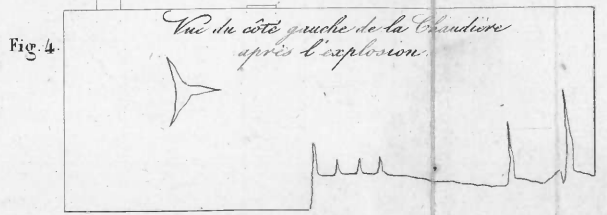 Vue du côté gauche de la Chaudière
après l'explosion.
Fig. 4.